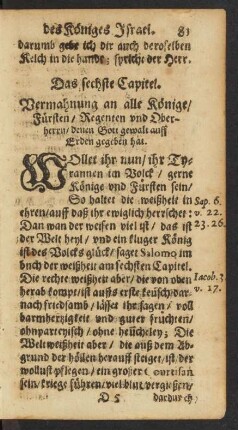 des Königes Israel. 81
darumb gebe ich dir auch deroselben
Kelch in die hande; spricht der Herr.
Das sechste Capitel.
Vermahnung an alle Könige/
Fürsten/ Regenten vnd Ober-
herrn/ denen Gott gewalt auff
Erden gegeben hat.
WOllet ihr nun/ ihr Ty-
rannen im Volck/ gerne
Könige vnd Fürsten sein/
So haltet die weißheit in Sap. 6.
ehren/ auff daß ihr ewiglich herrschet: v. 22.
Dan wan der weisen viel ist/ das ist 23. 26.
der Welt heyl/ vnd ein kluger König
ist des Volcks glück/ saget Salomo im
buch der weißheit am sechsten Capitel.
Die rechte weißheit aber/ die von oben Iacob. 3
herab kompt/ ist auffs erste keusch/ dar- v. 17.
nach friedsamb/ lässet ihr sagen/ voll
barmhertzigkeit vnd guter früchten/
ohnparteyisch/ ohne heücheley; Die
Weltweißheit aber/ die auß dem Ab-
grund der höllen herauff steiget/ ist/ der
wollust pflegen/ ein grosser Courtisan
sein/ kriege führen/ viel blut vergießen/
D 5 dardurch